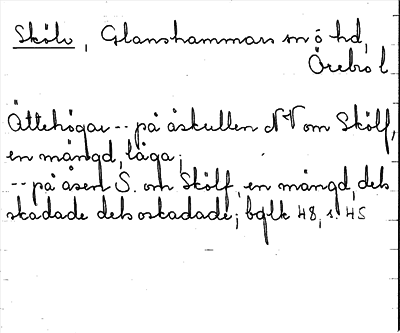 Skölv, Glanshammars sn ö hd,
Örebro l
Ättehögar -- på åskullen NV om Skölf,
en mängd, låga;
-- på åsen S. om Skölf, en mängd, dels
skadade dels oskadade; bglk 48, s. 45